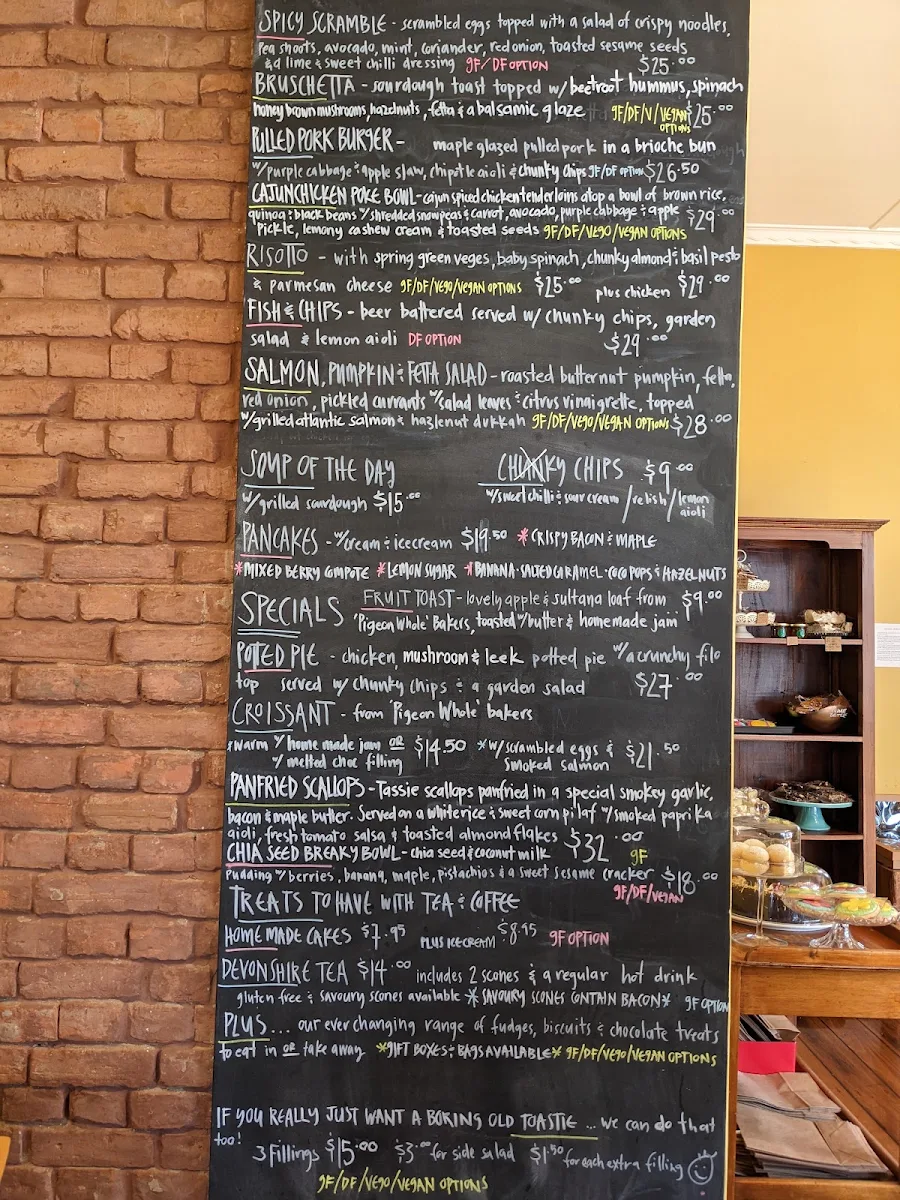 SPICY SCRAMBLE - scrambled eggs topped with a salad of crispy noodles,
pea shoots, avocado, mint, coriander, red onion, toasted sesame seeds
& a lime & sweet chilli dressing GF/DF OPTION $25.00
BRUSCHETTA - sourdough toast topped w/ beetroot hummus, spinach
honey brown mushrooms, hazelnuts, fetta & a balsamic glaze GF/DF/V/VEGAN OPTIONS $25.00
PULLED PORK BURGER - maple glazed pulled pork in a brioche bun
w/ purple cabbage & apple slaw, chipotle aioli & chunky chips GF/DF OPTION $26.50
CAJUN CHICKEN POKE BOWL - cajun spiced chicken tenderloins atop a bowl of brown rice,
quinoa & black beans w/ shredded snowpeas & carrot, avocado, purple cabbage & apple $29.00
pickle, lemony cashew cream & toasted seeds GF/DF/VEGO/VEGAN OPTIONS
RISOTTO - with spring green veges, baby spinach, chunky almond & basil pesto
& parmesan cheese GF/DF/VEGO/VEGAN OPTIONS $25.00 plus chicken $29.00
FISH & CHIPS - beer battered served w/ chunky chips, garden
salad & lemon aioli DF OPTION $29.00
SALMON, PUMPKIN & FETTA SALAD - roasted butternut pumpkin, fetta,
red onion, pickled currants w/ salad leaves & citrus vinaigrette, topped
w/ grilled atlantic salmon & hazelnut dukkah GF/DF/VEGO/VEGAN OPTIONS $28.00
SOUP OF THE DAY CHUNKY CHIPS $9.00
w/ grilled sourdough $15.00 w/ sweet chilli & sour cream / relish / lemon aioli
PANCAKES - w/ cream & icecream $19.50 * CRISPY BACON & MAPLE
* MIXED BERRY COMPOTE * LEMON SUGAR * BANANA · SALTED CARAMEL · COCO POPS & HAZELNUTS
SPECIALS FRUIT TOAST - lovely apple & sultana loaf from $9.00
'Pigeon Whole' Bakers, toasted w/ butter & homemade jam
POTTED PIE - chicken, mushroom & leek potted pie w/ a crunchy filo
top served w/ chunky chips & a garden salad $27.00
CROISSANT - from 'Pigeon Whole' bakers
*warm w/ home made jam OR $14.50 * w/ scrambled eggs & $21.50
w/ melted choc filling smoked salmon
PANFRIED SCALLOPS - Tassie scallops panfried in a special smokey garlic,
bacon & maple butter. Served on a white rice & sweet corn pilaf w/ smoked paprika
aioli, fresh tomato salsa & toasted almond flakes $32.00 GF
CHIA SEED BREAKY BOWL - chia seed & coconut milk
pudding w/ berries, banana, maple, pistachios & a sweet sesame cracker $18.00
GF/DF/VEGAN
TREATS TO HAVE WITH TEA & COFFEE
HOME MADE CAKES $7.95 PLUS ICE CREAM $8.95 GF OPTION
DEVONSHIRE TEA $14.00 includes 2 scones & a regular hot drink
gluten free & savoury scones available * SAVOURY SCONES CONTAIN BACON * GF OPTION
PLUS... our ever changing range of fudges, biscuits & chocolate treats
to eat in OR take away *GIFT BOXES & BAGS AVAILABLE* GF/DF/VEGO/VEGAN OPTIONS
IF YOU REALLY JUST WANT A BORING OLD TOASTIE ... we can do that
too!
3 Fillings $15.00 $3.00 for side salad $1.50 for each extra filling
GF/DF/VEGO/VEGAN OPTIONS